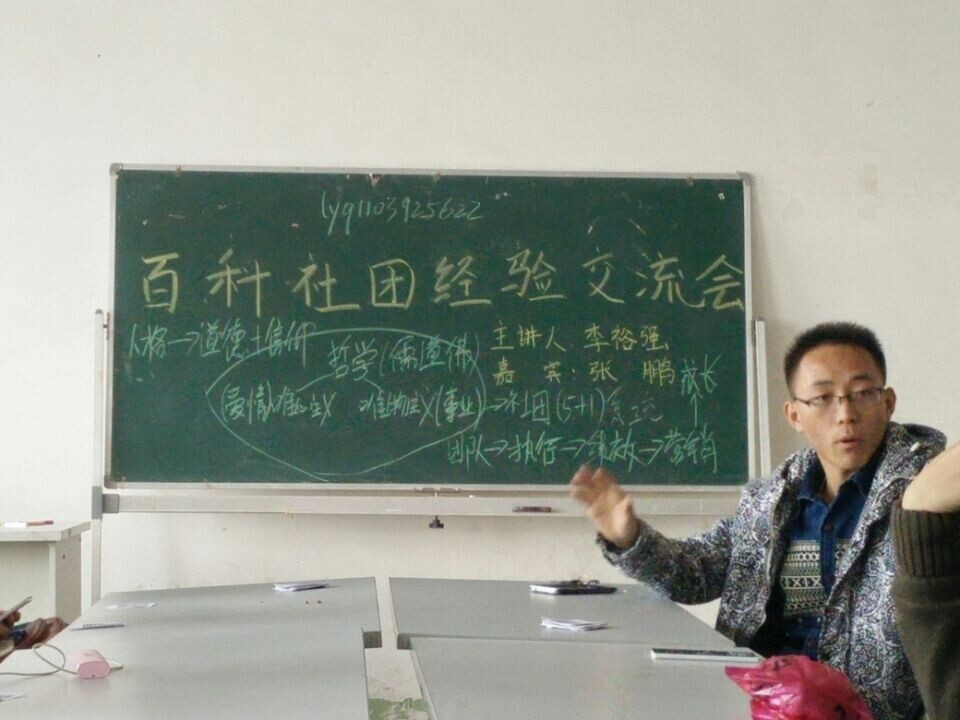 lyq1103925622
百科社团经验交流会
人格→道德+信仰
主讲人 李裕强
哲学(儒道佛)
嘉宾:张鹏 成长
(爱情)唯心主义 唯物主义(事业)→社团(5+1)
团队→执行→绩效→营销